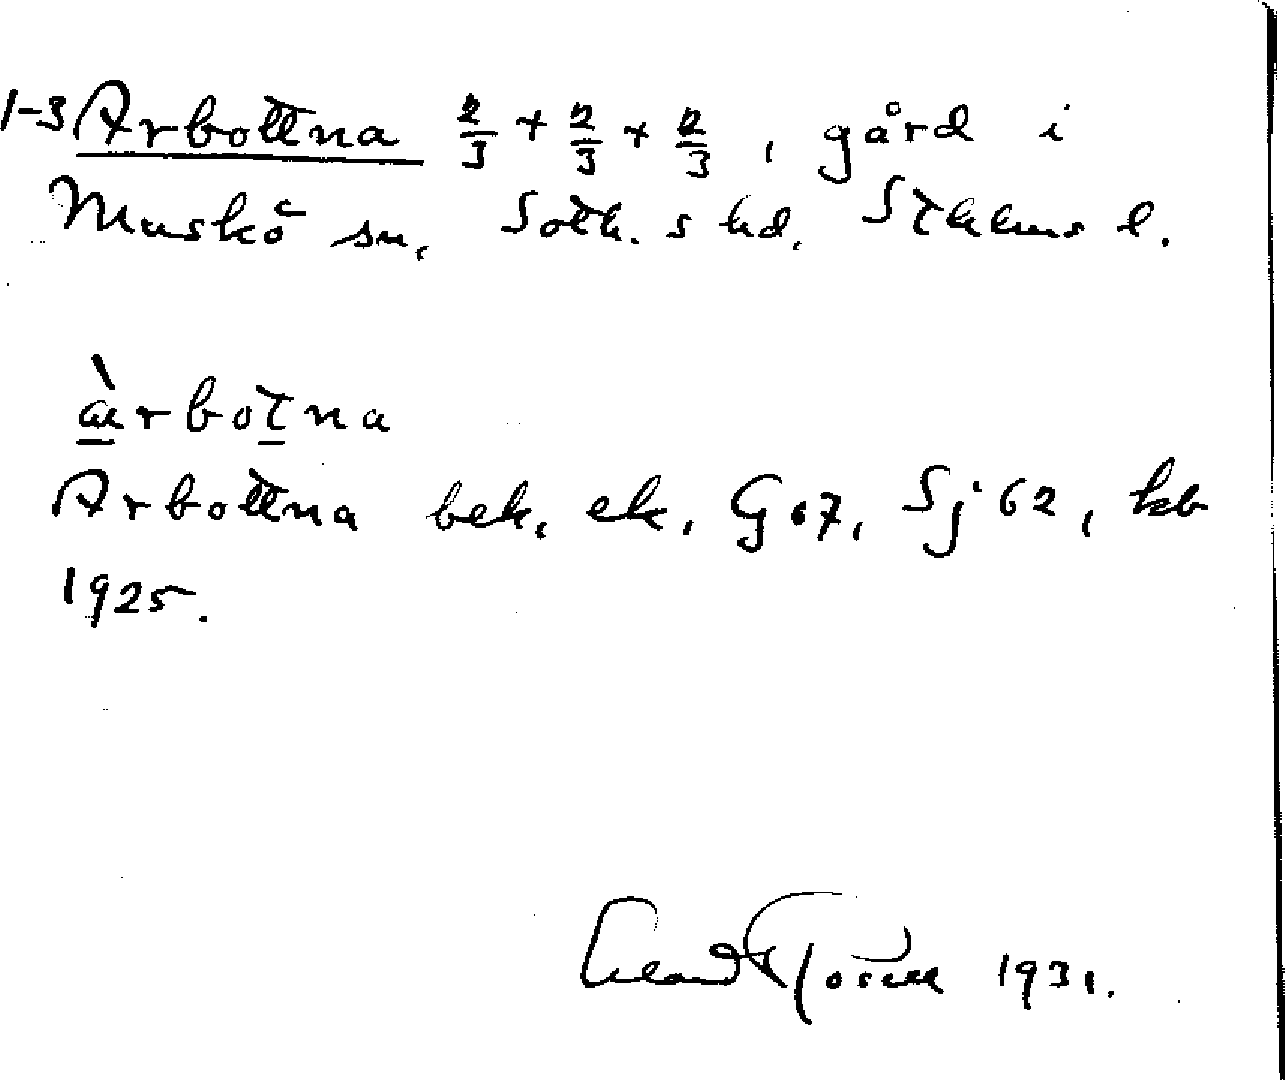 1-3 Arbottna 2/3 + 2/3 + 2/3, gård i
Muskö sn, Soth. s hd, Sthlms l.
àrbotna
Arbottna bek, ek, G 67, Sj 62, kb
1925.
1931.